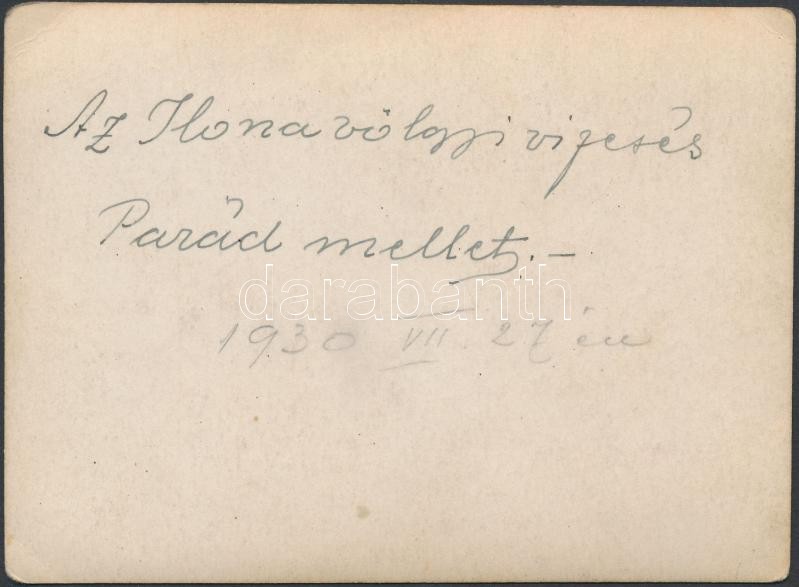 Az Ilona völgyi vizesés
Parád mellet.—
darabanth
1930 VII. 27 én